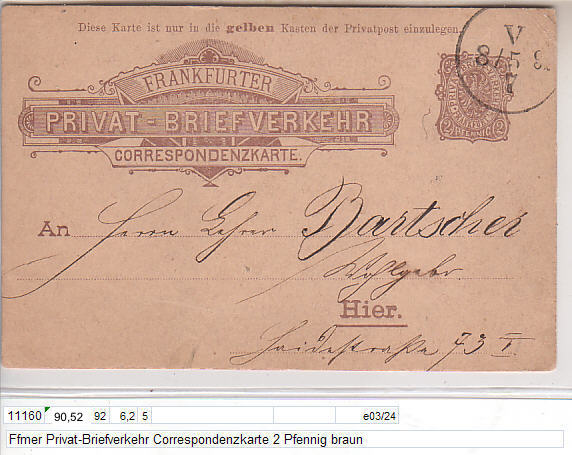 Diese Karte ist nur in die gelben Kasten der Privatpost einzulegen.
FRANKFURTER
PRIVAT-BRIEFVERKEHR
CORRESPONDENZKARTE.
2 PFENNIG 2
V
An Herrn Lehrer Bartscher
Wohlgebr.
Hier.
Haidestraße 73 I.
11160 90,52 92 6,2 5 e03/24
Ffmer Privat-Briefverkehr Correspondenzkarte 2 Pfennig braun